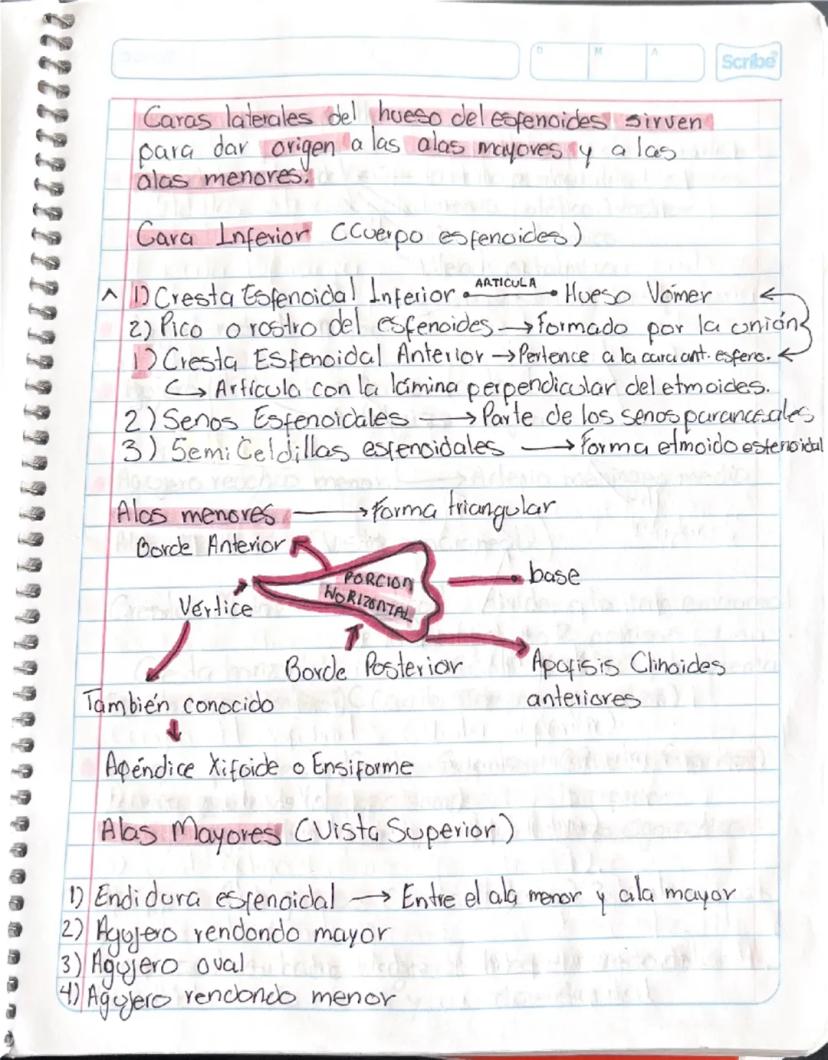 D M A Scribe
Caras laterales del hueso del esfenoides sirven
para dar origen a las alas mayores y a las
alas menores.
Cara Inferior (Cuerpo esfenoides)
^ 1) Cresta Esfenoidal Inferior ARTICULA Hueso Vómer
2) Pico o rostro del esfenoides → Formado por la unión
1) Cresta Esfenoidal Anterior → Pertence a la cara ant. esfeno.
↳ Artícula con la lámina perpendicular del etmoides.
2) Senos Esfenoidales → Parte de los senos paranasales
3) Semi Celdillas esfenoidales → Forma etmoido esfenoidal
Alas menores → Forma triangular
Borde Anterior
PORCION
HORIZONTAL
base
Vértice
Borde Posterior
Apofisis Clinoides
anteriores
También conocido
Apéndice Xifoide o Ensiforme
Alas Mayores (Vista Superior)
1) Endidura esfenoidal → Entre el ala menor y ala mayor
2) Agujero rendondo mayor
3) Agujero oval
4) Agujero rendondo menor